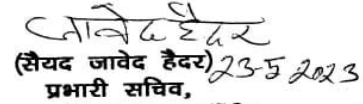 जावेद हैदर
(सैयद जावेद हैदर) 23-5 2023
प्रभारी सचिव,